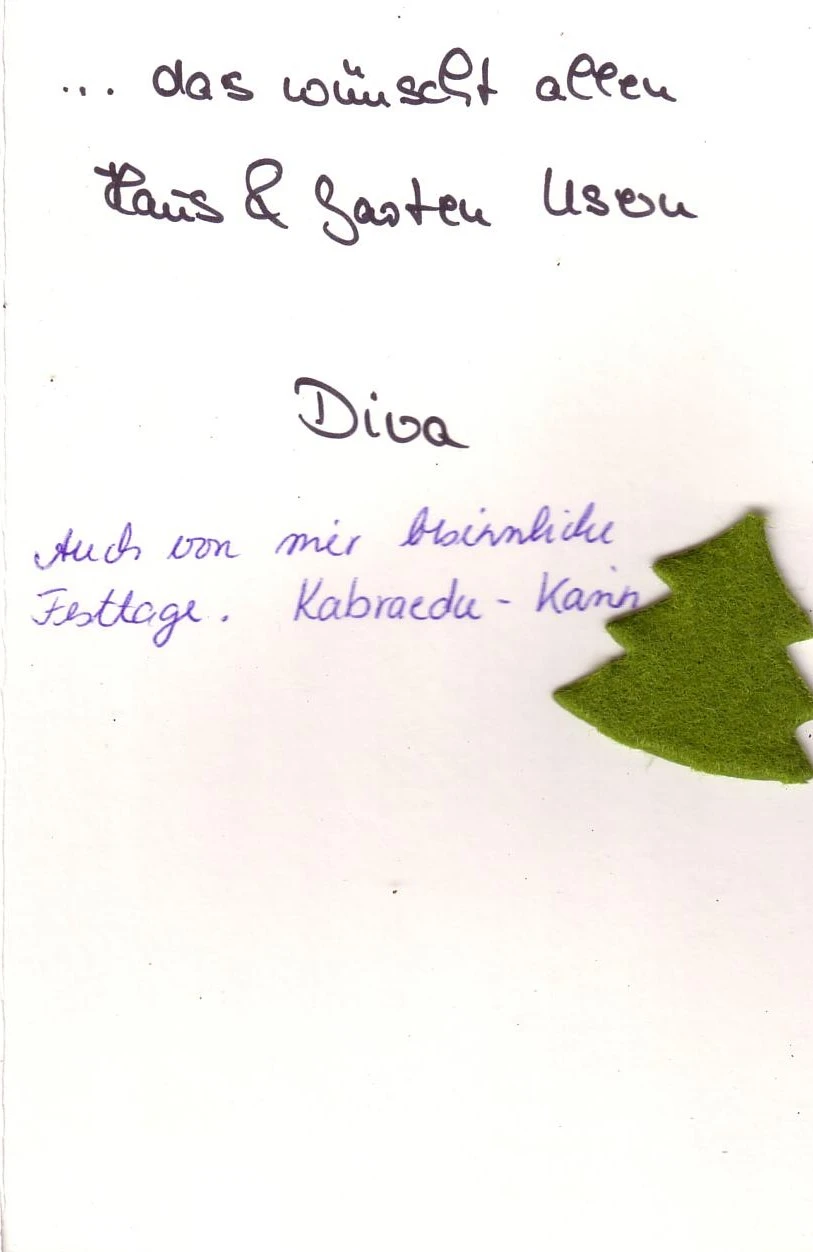 ... das wünscht allen
Haus & Garten Usern
Diva
Auch von mir besinnliche
Festtage. Kabraedu - Karin